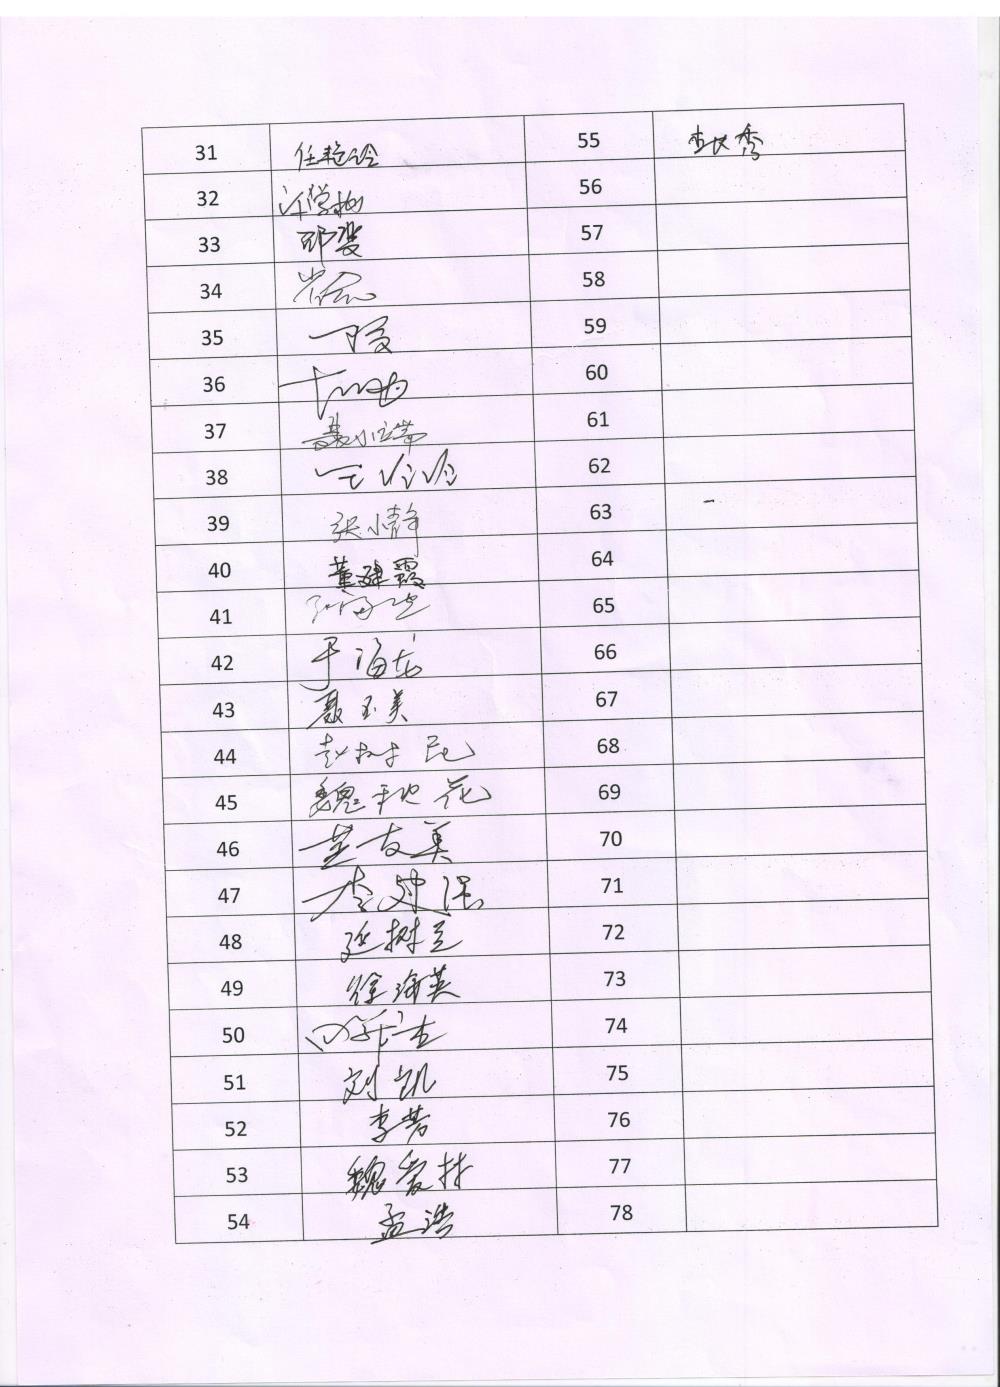 31 任艳玲 55 李长秀
32 56
33 邓斐 57
34 58
35 丁霞 59
36 60
37 聂小立带 61
38 王玲玲 62
39 张小静 63
40 董建霞 64
41 65
42 于海龙 66
43 聂玉美 67
44 赵树民 68
45 魏秋花 69
46 董友美 70
47 李建强 71
48 延树兰 72
49 徐海英 73
50 74
51 刘凯 75
52 李芳 76
53 魏爱林 77
54 孟浩 78